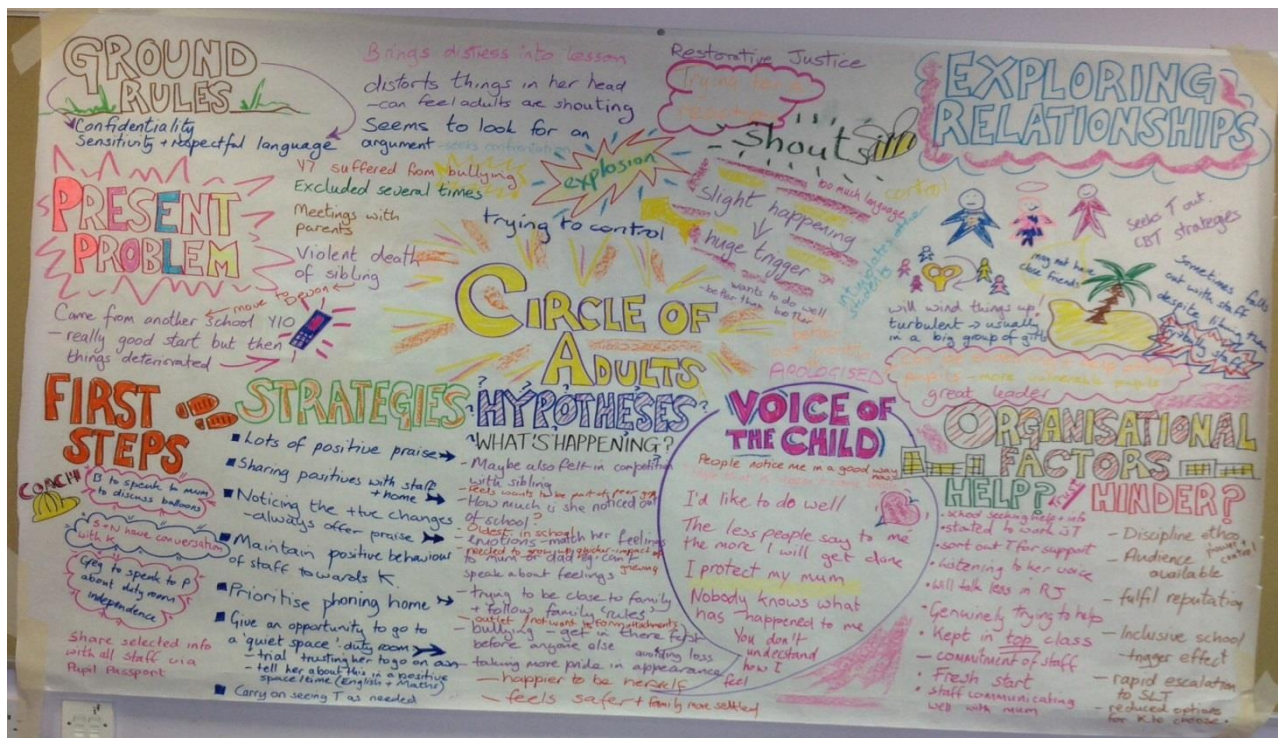 GROUND
RULES
Confidentiality
Sensitivity + respectful language
PRESENT
PROBLEM
Came from another school Y10
move to Devon
- really good start but then
things deteriorated
Brings distress into lesson
distorts things in her head
- can feel adults are shouting
Seems to look for an
argument - seeks confrontation
Y7 suffered from bullying
Excluded several times
Meetings with
parents
Violent death
of sibling
explosion
trying to control
CIRCLE OF
ADULTS
Restorative Justice
Trying for a
reaction
Shouts
too much language
control
Slight happening
huge trigger
intimidates other
students
wants to do well
- better than brother
APOLOGISED
EXPLORING
RELATIONSHIPS
seeks T out.
CBT strategies
may not have
close friends
will wind things up!
turbulent → usually
in a big group of girls
Sometimes falls
out with staff
despite liking them
probably staff
pupils - more vulnerable pupils
great leader
FIRST
STEPS
COACH
B to speak to mum
to discuss balloons
S+N have conversation
with K
Greg to speak to P
about duty room
independence
Share selected info
with all staff via
Pupil Passport
STRATEGIES
Lots of positive praise
Sharing positives with staff
+ home
Noticing the +tve changes
- always offer praise
Maintain positive behaviour
of staff towards K.
Prioritise phoning home
Give an opportunity to go to
a 'quiet space' duty room
- trial trusting her to go on own
- tell her about this in a positive
space/time (English + Maths)
Carry on seeing T as needed
? HYPOTHESES?
WHAT'S HAPPENING?
- Maybe also felt in competition
with sibling
- Feels wants to be part of peer grp
- How much is she noticed out
of school?
Oldest in school
- emotions - match her feelings
needed to grow up quicker - impact of
grieving
to mum or dad eg. can
speak about feelings
- trying to be close to family
+ follow family 'rules'
- outlet / not want to form attachments
- bullying - get in there first
before anyone else
avoiding loss
- taking more pride in appearance
- happier to be herself
- feels safer + family more settled
VOICE OF
THE CHILD
People notice me in a good way
now
I'd like to do well
The less people say to me
the more I will get done
I protect my mum
Nobody knows what
has happened to me
You don't
understand
how I
feel
ORGANISATIONAL
FACTORS
HELP?
trust
school seeking help + info
started to work w T
sort out T for support
listening to her voice
will talk less in RJ
Genuinely trying to help
Kept in top class
- commitment of staff
Fresh start
staff communicating
well with mum
HINDER?
- Discipline ethos
power + control
- Audience
available
- fulfil reputation
- Inclusive school
- trigger effect
- rapid escalation
to SLT
- reduced options
for K to choose.